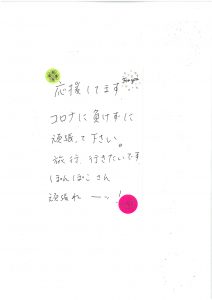 応援してます
コロナに負けずに
頑張って下さい。
旅行、行きたいです
ぽんぽこさん
頑張れーッ!